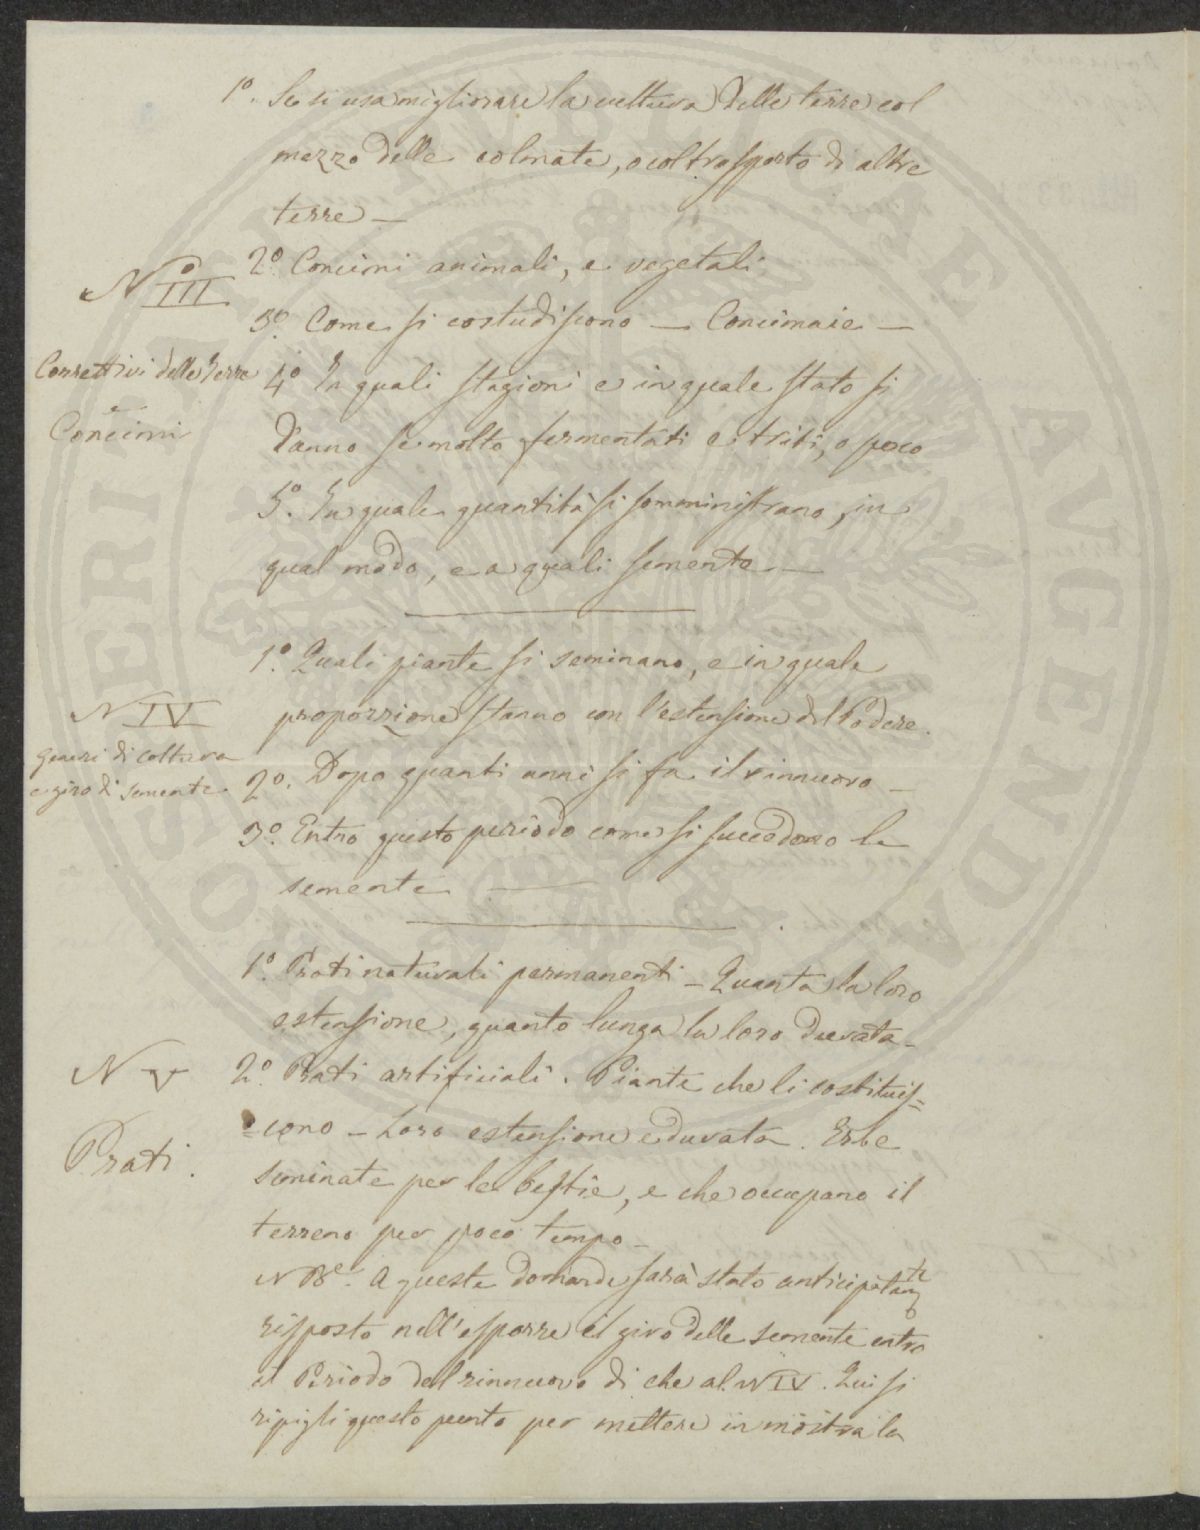 1º. Se si usa migliorare la cultura delle terre col
mezzo delle colmate, o col trasporto di altre
terre —
Nº III
Correttivi delle Terre
e
Concimi
2º. Concimi animali, e vegetali
3º. Come si costudiscono — Concimaie —
4º In quali stagioni e in quale stato si
danno se molto fermentati e triti, o poco
5º. In quale quantità si somministrano, in
qual modo, e a quali semente —
N IV
generi di coltura
e giro di semente
1º. Quali piante si seminano, e in quale
proporzione stanno con l'estensione del Podere.
2º. Dopo quanti anni si fa il rinnuovo —
3º. Entro questo periodo come si succedono le
semente —
N V
Prati.
1º. Prati naturali permanenti — Quanta la loro
estensione, quanto lunga la loro durata —
2º. Prati artificiali. Piante che li costituis=
=cono — Loro estensione e durata. Erbe
seminate per le bestie, e che occupano il
terreno per poco tempo —
NBe. A queste domande sarà stato anticipatamte
risposto nell'esporre il giro delle semente entro
il Periodo del rinnuovo di che al N IV. Qui si
ripigli questo punto per mettere in mostra la
SOSERI PVBLICAE AVGENDAE